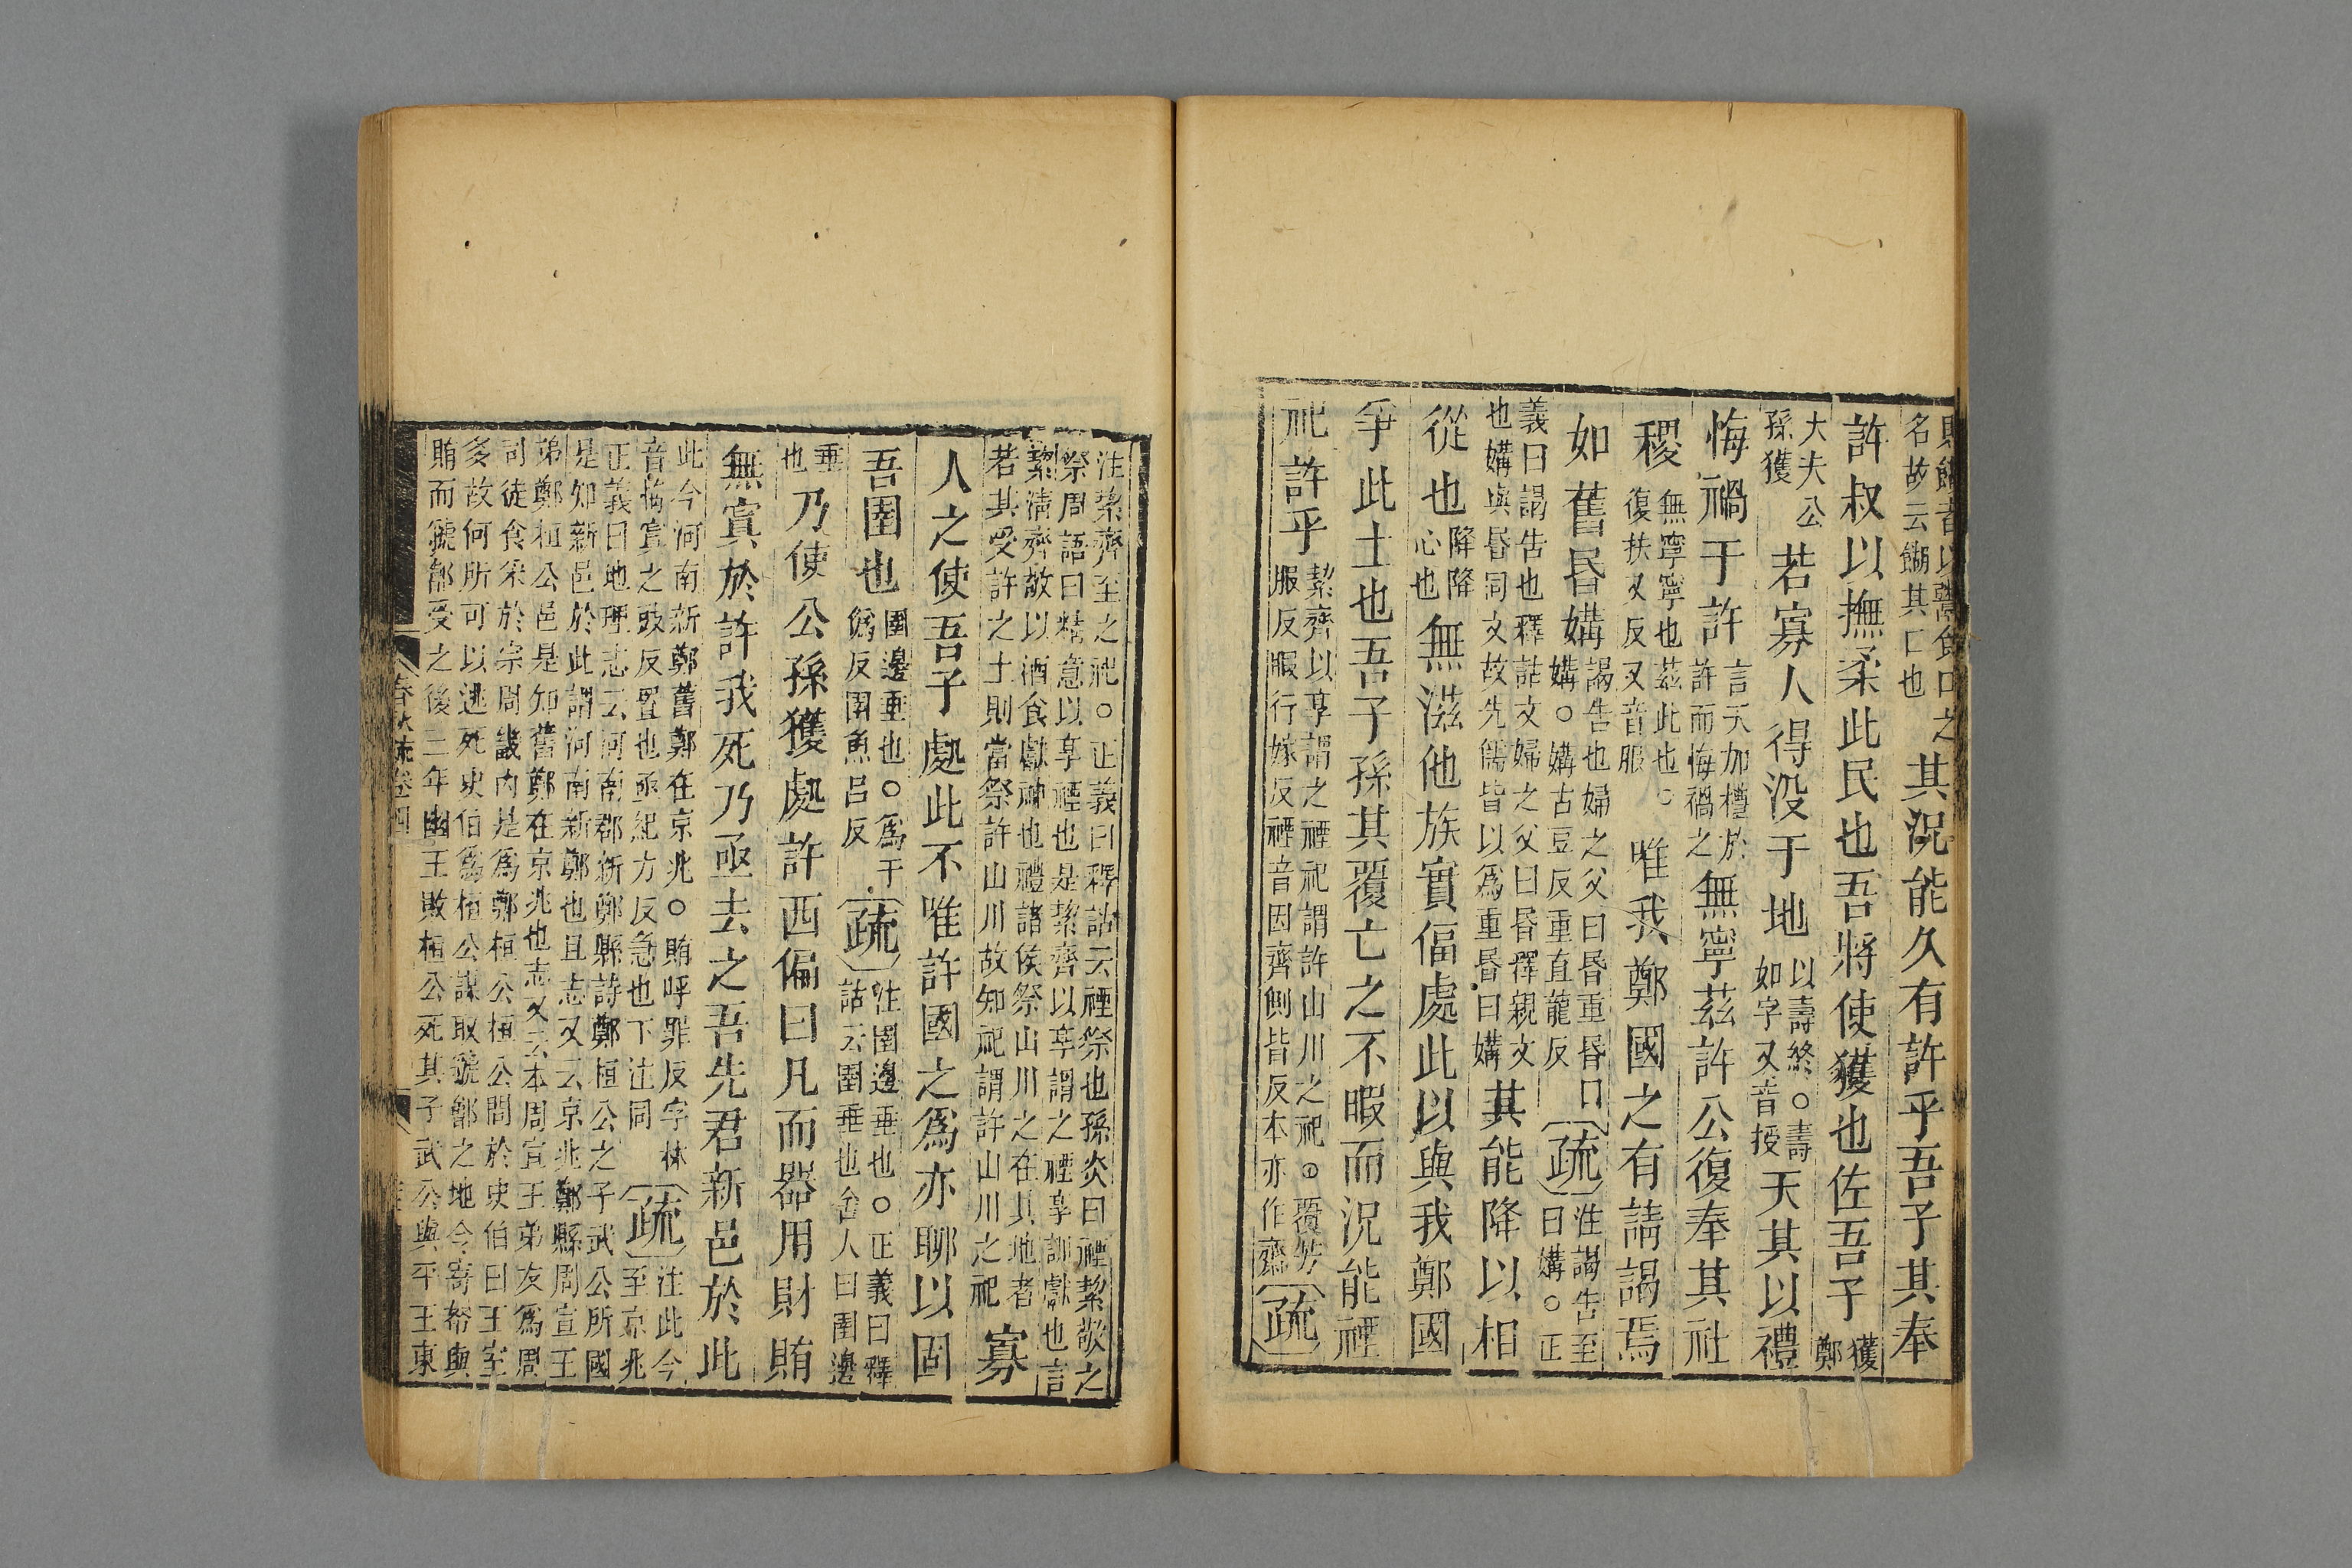 則餬者以鬻食口之
名故云餬其口也
其況能久有許乎吾子其奉
許叔以撫柔此民也吾將使獲也佐吾子
獲
鄭
大夫公
孫獲
若寡人得没于地
以壽終○壽
如字又音授
天其以禮
悔禍于許
言天加禮於
許而悔禍之
無寧茲許公復奉其社
稷
無寧寧也茲此也○
復扶又反又音服
唯我鄭國之有請謁焉
如舊昏媾
謁告也婦之父曰昏重昏曰
媾○媾古豆反重直龍反
疏
注謁告至
曰媾○正
義曰謁告也釋詁文婦之父曰昏釋親文
也媾與昏同文故先儒皆以爲重昏曰媾
其能降以相
從也
降降
心也
無滋他族實偪處此以與我鄭國
爭此土也吾子孫其覆亡之不暇而況能禋
祀許乎
絜齊以享謂之禋祀謂許山川之祀○覆芳
服反暇行嫁反禋音因齊側皆反本亦作齋
疏
注絜齊至之祀○正義曰釋詁云禋祭也孫炎曰禋絜敬之
祭周語曰精意以享禋也是絜齊以享謂之禋享訓獻也言
絜清齊敬以酒食獻神也禮諸侯祭山川之在其地者
若其受許之土則當祭許山川故知祀謂許山川之祀
寡
人之使吾子處此不唯許國之爲亦聊以固
吾圉也
圉邊垂也○爲于
僞反圉魚呂反
疏
注圉邊垂也○正義曰釋
詁云圉垂也舍人曰圉邊
垂
也
乃使公孫獲處許西偏曰凡而器用財賄
無寘於許我死乃亟去之吾先君新邑於此
此今河南新鄭舊鄭在京兆○賄呼罪反字林
音悔寘之豉反置也亟紀力反急也下注同
疏
注此今
至京兆
正義曰地理志云河南郡新鄭縣詩鄭桓公之子武公所國
是知新邑於此謂河南新鄭也且志又云京兆鄭縣周宣王
弟鄭桓公邑是知舊鄭在京兆也志又云本周宣王弟友爲周
司徒食采於宗周畿内是爲鄭桓公桓公問於史伯曰王室
多故何所可以逃死史伯爲桓公謀取虢鄶之地今寄帑與
賄而虢鄶受之後三年幽王敗桓公死其子武公與平王東
春秋疏卷四